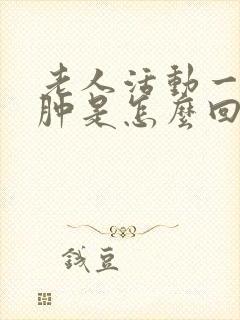 老人活動一
肿是怎麼回
錢豆